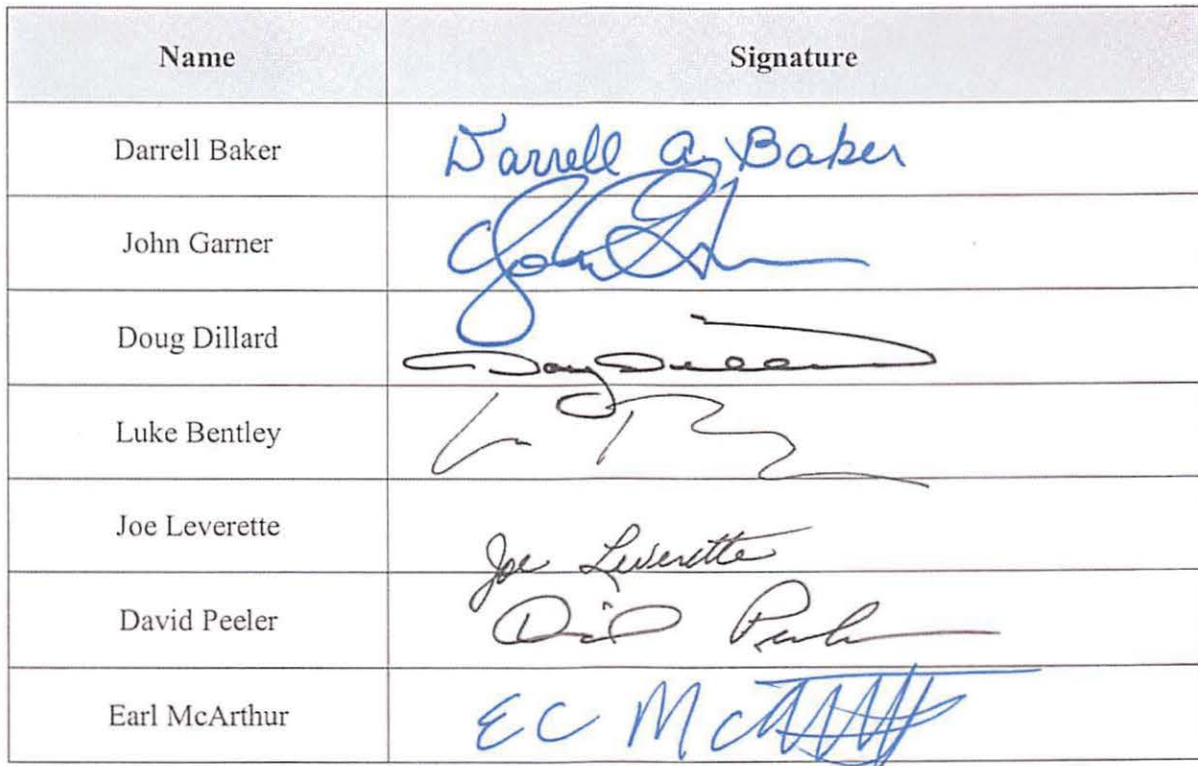 Name Signature
Darrell Baker Darrell A. Baker
John Garner John
Doug Dillard Doug Dillard
Luke Bentley
Joe Leverette Joe Leverette
David Peeler David
Earl McArthur EC Mc